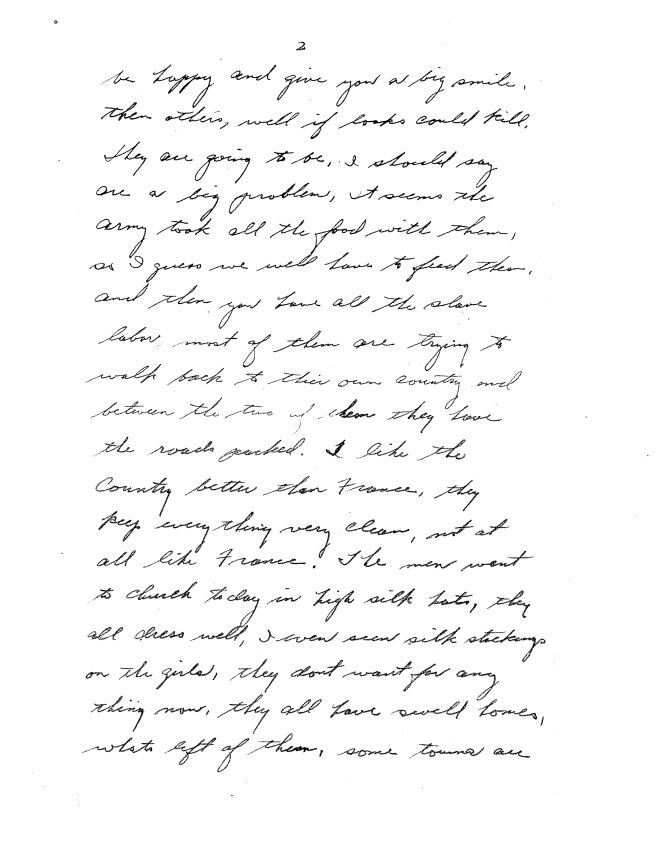 2
be happy and give you a big smile,
then others, well if looks could kill.
They are going to be, I should say
are a big problem, it seems the
army took all the food with them,
so I guess we well have to feed them.
and then you have all the slave
labor, most of them are trying to
walk back to their own country and
between the two of them they have
the roads packed. I like the
Country better than France, they
keep every thing very clean, not at
all like France! The men went
to church today in high silk hats, they
all dress well, I even seen silk stockings
on the girls, they dont want for any
thing now, they all have swell homes,
whats left of them, some towns are